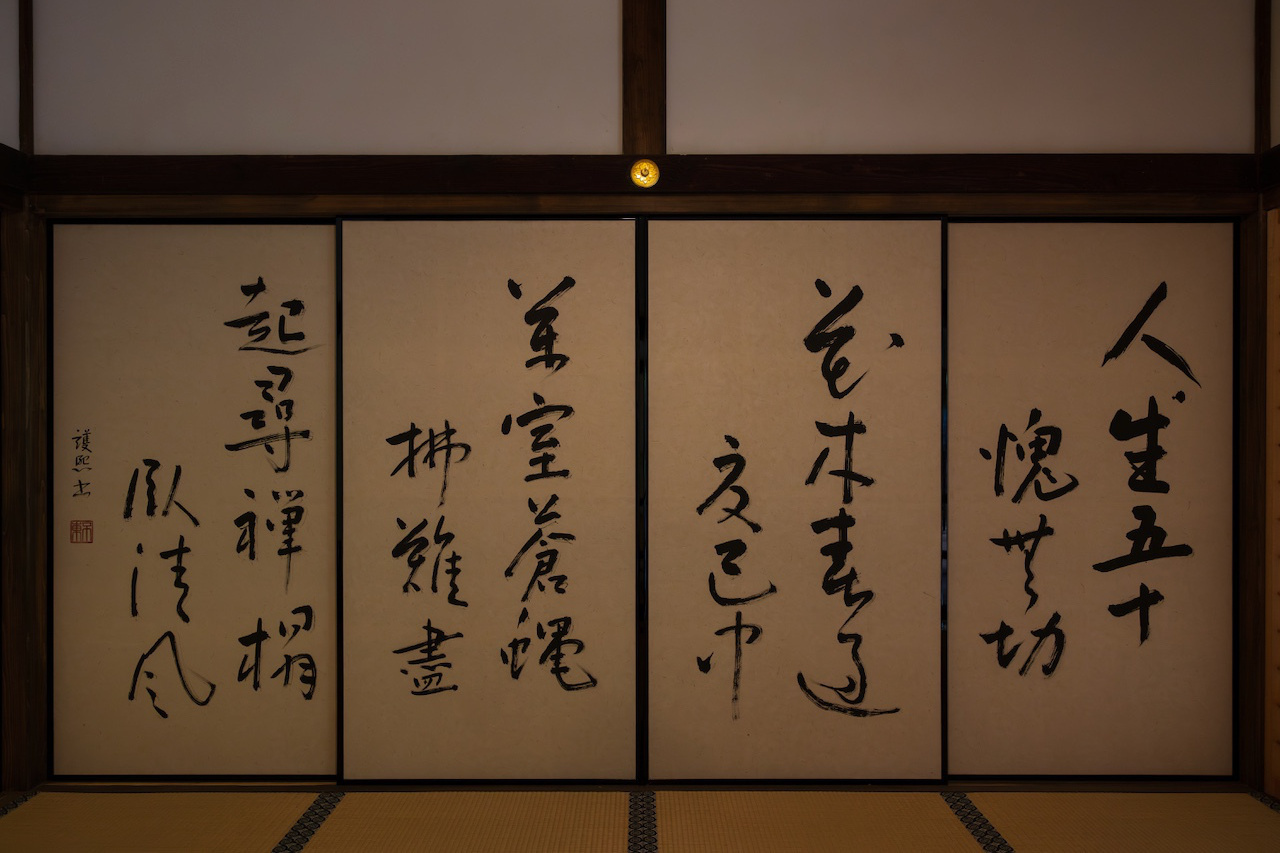 人生五十
愧無功
花木春過
夏已中
萬室蒼蠅
拂難盡
起尋禪榻
臥清風
護熙書